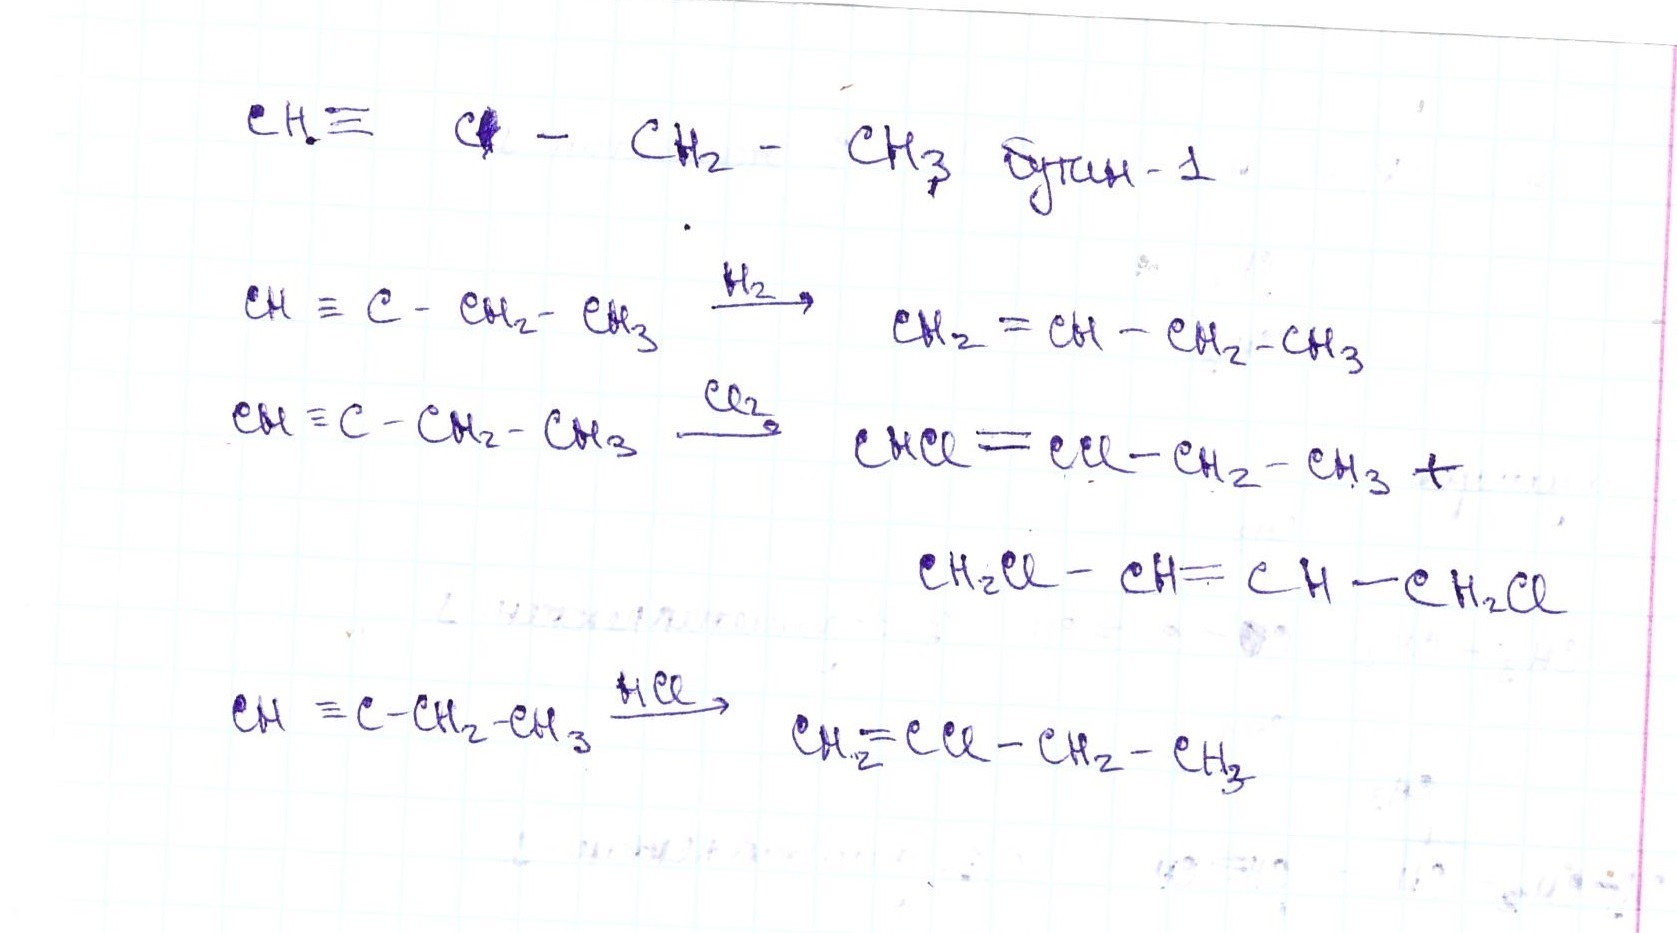 CH ≡ C - CH₂ - CH₃ бутин-1
CH ≡ C - CH₂ - CH₃ H₂→ CH₂ = CH - CH₂ - CH₃
CH ≡ C - CH₂ - CH₃ Cl₂→ CHCl = CCl - CH₂ - CH₃ +
CH₂Cl - CH = CH - CH₂Cl
CH ≡ C - CH₂ - CH₃ HCl→ CH₂ = CCl - CH₂ - CH₃